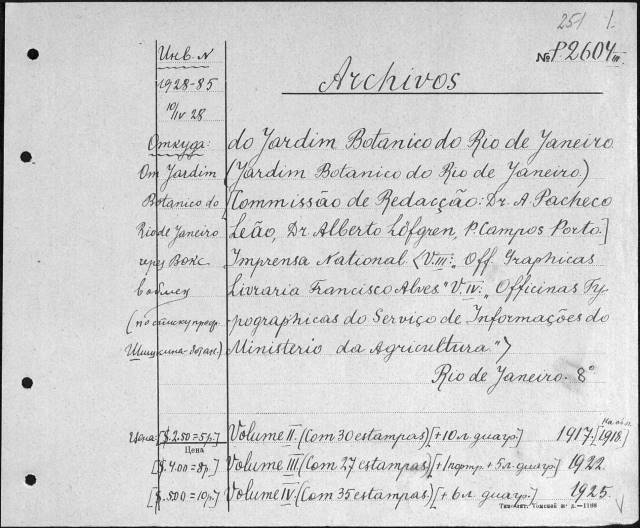 251 1.
№ P.2604 III.
Инв. N
1928-85
10/IV 28
Откуда:
От Jardim
Botanico do
Rio de Janeiro
через Вокс
в обмен
(по списку проф.
Шишкина-ботан.)
Archivos
do Jardim Botanico do Rio de Janeiro.
(Jardim Botanico do Rio de Janeiro.)
[Commissão de Redacção: Dr. A. Pacheco
Leão, Dr. Alberto Löfgren, P. Campos Porto.]
Imprensa National. <V. III: „Off. Graphicas
Livraria Francisco Alves" V. IV: „Officinas Ty-
pographicas do Serviço de Informações do
Ministerio da Agricultura.">
Rio de Janeiro. 8°
Цена: [$ 2.50 = 5 р.] Volume II. (Com 30 estampas) [+ 10 л. диагр.] 1917. [1918]
Цена
[$ 4.00 = 8 р.] Volume III. (Com 27 estampas) [+ 1 портр. + 5 л. диагр.] 1922.
[$ 5.00 = 10 р.] Volume IV. (Com 35 estampas) [+ 6 л. диагр.] 1925.
Типо-лит. Томской ж. д.—1198